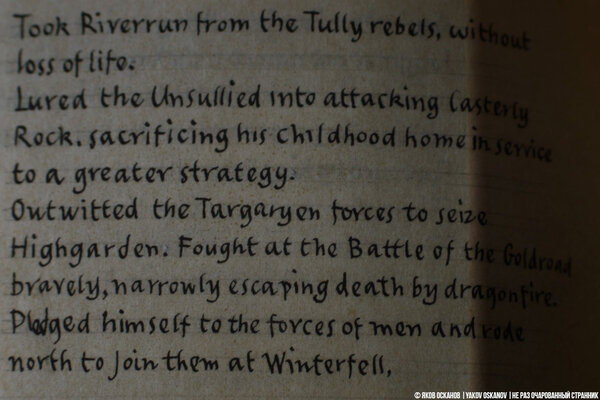 Took Riverrun from the Tully rebels, without
loss of life.
Lured the Unsullied into attacking Casterly
Rock. sacrificing his childhood home in service
to a greater strategy.
Outwitted the Targaryen forces to seize
Highgarden. Fought at the Battle of the Goldroad
bravely, narrowly escaping death by dragonfire.
Pledged himself to the forces of men and rode
north to join them at Winterfell,
© ЯКОВ ОСКАНОВ | YAKOV OSKANOV | НЕ РАЗ ОЧАРОВАННЫЙ СТРАННИК